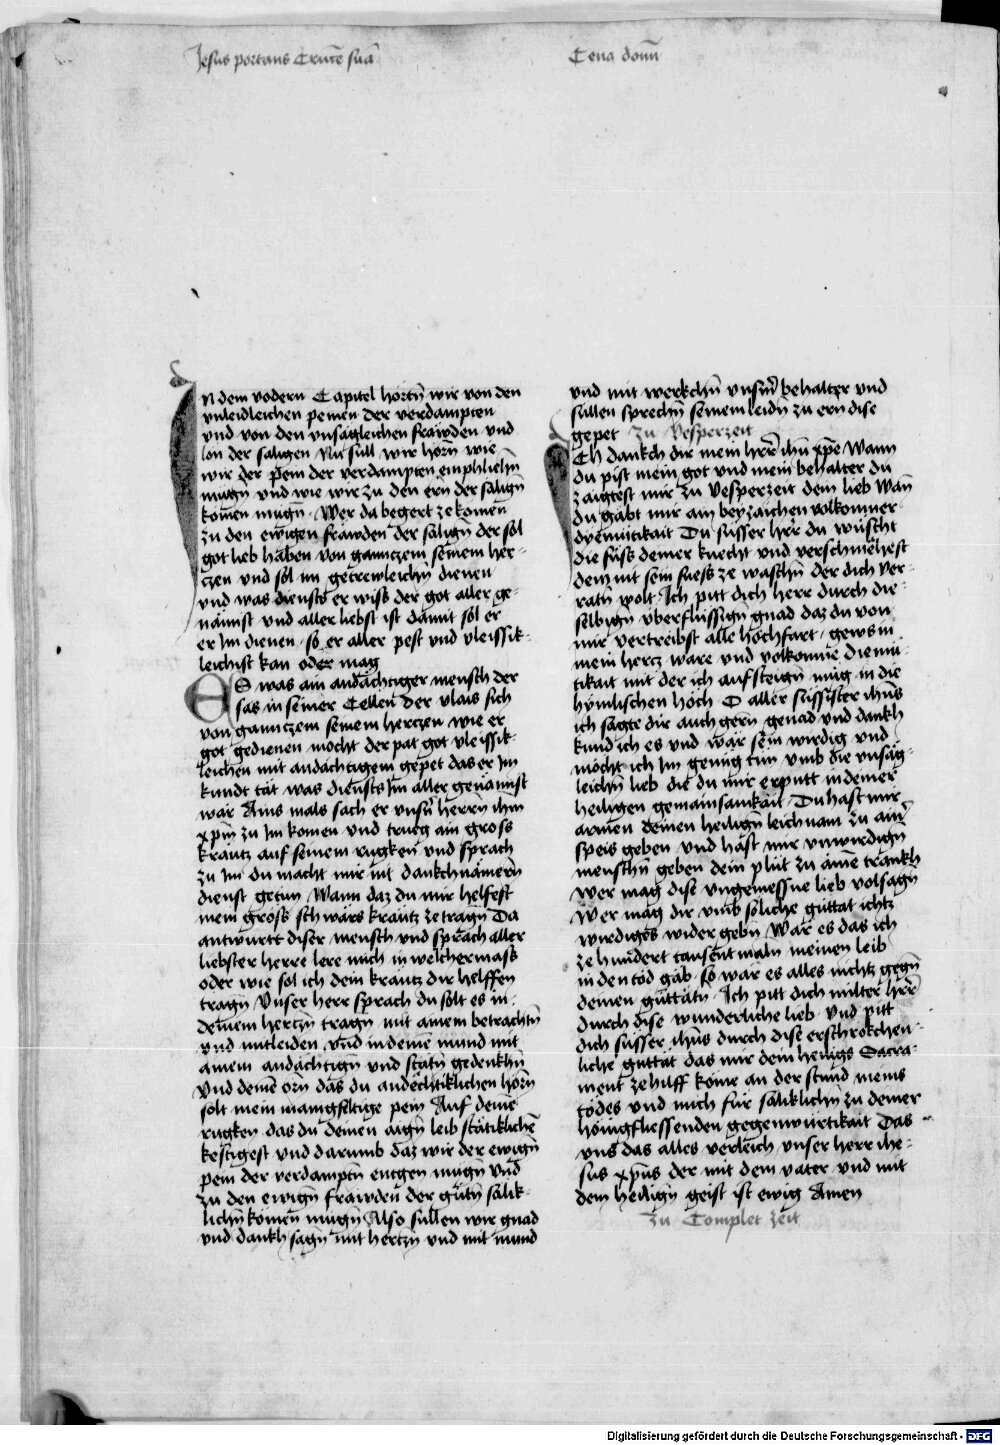 Jesus portans Crucē suā
Cena domī
In dem vodern Capitel hortn̄ wir von den
vnleidleichen peinen der verdampten
vnd von den vnsägleichen fräwden vnd
lon der saligen Nu süll wir hörn̄ wie
wir der Pein der verdampten emphliehn̄
mugn̄ vnd wie wir zu den ern̄ der salign̄
komen mugn̄ . Wer da begert ze komen
zu den ewigen fräwden der salign̄ der sol
got lieb haben von ganczem seinem her-
czen vnd sol im getrewleichn̄ dienen
vnd was diensts er wiss der got aller ge-
nämist vnd aller liebst ist damit sol er
er Im dienen . so er aller pest vnd vleissik-
leichist kan oder mag
ES was ain andächtiger mensch der
sas in seiner Cellen der vlais sich
von ganczem seinem herczen wie er
got gedienen möcht der pat got vleissik-
leichen mit andächtigem gepet das er Im
kundt tät was diensts Im aller genämist
wär Ains mals sach er vnsn̄ herren ihm
xpm̄ zu Im komen vnd trueg ain gross
kräutz auf seinem rugken vnd sprach
zu Im du macht mir nit dankchnämern̄
dienst getun Wann daz du mir helfest
mein gross schwärs kräutz ze tragn̄ Da
antwurtt diser mensch vnd sprach aller
liebster herre lere mich in welchermass
oder wie sol ich dein kräutz dir helffen
tragn̄ Vnser herr sprach du solt es in
deinem hertzn̄ tragn̄ mit ainem betrachtn̄
vnd mitleiden vnd in deinē mund mit
ainem andächtign̄ vnd stätn̄ gedenkhn̄
Vnd deinē orn̄ das du andechtiklichen hörn̄
solt mein manigfeltige pein Auf deinē
rugken das du deinen aign̄ leib stätiklichē
kestigest vnd darumb daz wir der ewign̄
pein der verdamptn̄ entgen mugn̄ vnd
zu den ewign̄ fräwden der gutn̄ sälik-
lichn̄ komen mugn̄ Also süllen wir gnad
vnd dankh sagn̄ mit hertzn̄ vnd mit mund
vnd mit werkchn̄ vnsm̄ behalter vnd
süllen sprechn̄ seinem leidn̄ zu ern dise
gepet zu Vesperzeit
Ich dankch dir mein hr̄r ihū xp̄e Wann
du pist mein got vnd mein behalter du
zaigtest mir zu Vesperzeit dein lieb Wan̄
du gabt mir ain beyzaichen volkomner
dyemütikait Du süsser hr̄r du wüscht
die füss deiner knecht vnd verschmehest
dem nit sein fuess ze waschn̄ der dich ver-
ratn̄ wolt Ich pitt dich herr durch die-
selbign̄ vberflüssign̄ gnad daz du von
mir vertreibst alle hochfart . gews in
mein hertz ware vnd volkomne diemü-
tikait mit der ich aufsteign̄ müg in die
hymlischen höch O aller süssister ihūs
ich sagte dir auch gern̄ genad vnd dankh
kund ich es vnd wär sein wirdig vnd
möcht ich Im genüg tun vmb die vnsäg-
leichn̄ lieb die du mir erputt in deiner
heiligen gemainsamkait . Du hast mir
armen deinen heilign̄ leichnam zu ainr̄
speis geben vnd hast mir vnwirdign̄
menschn̄ geben dein plut zu ainē trankh
Wer mag dise vngemessne lieb volsagn̄
Wer mag dir vmb söliche guttat ichtz
wirdiges wider gebn̄ Wär es das ich
ze hundert tausent maln meinen leib
in den tod gäb . so wär es alles nichtz gegn̄
deinen guttätn̄ . Ich pitt dich milter hr̄r
durch dise wunderliche lieb . Vnd pitt
dich süsser ihūs durch dise erschrökchen-
liche guttät das mir dein heiligs Sacra-
ment ze hilff kome an der stund meins
todes vnd mich für säliklichn̄ zu deiner
hönigfliessenden gegenwürtikait Das
vns das alles verleich vnser herr ihe-
sus xpūs der mit dem vater vnd mit
dem heilign̄ geist ist ewig Amen
zu Complet zeit
Digitalisierung gefördert durch die Deutsche Forschungsgemeinschaft - DFG